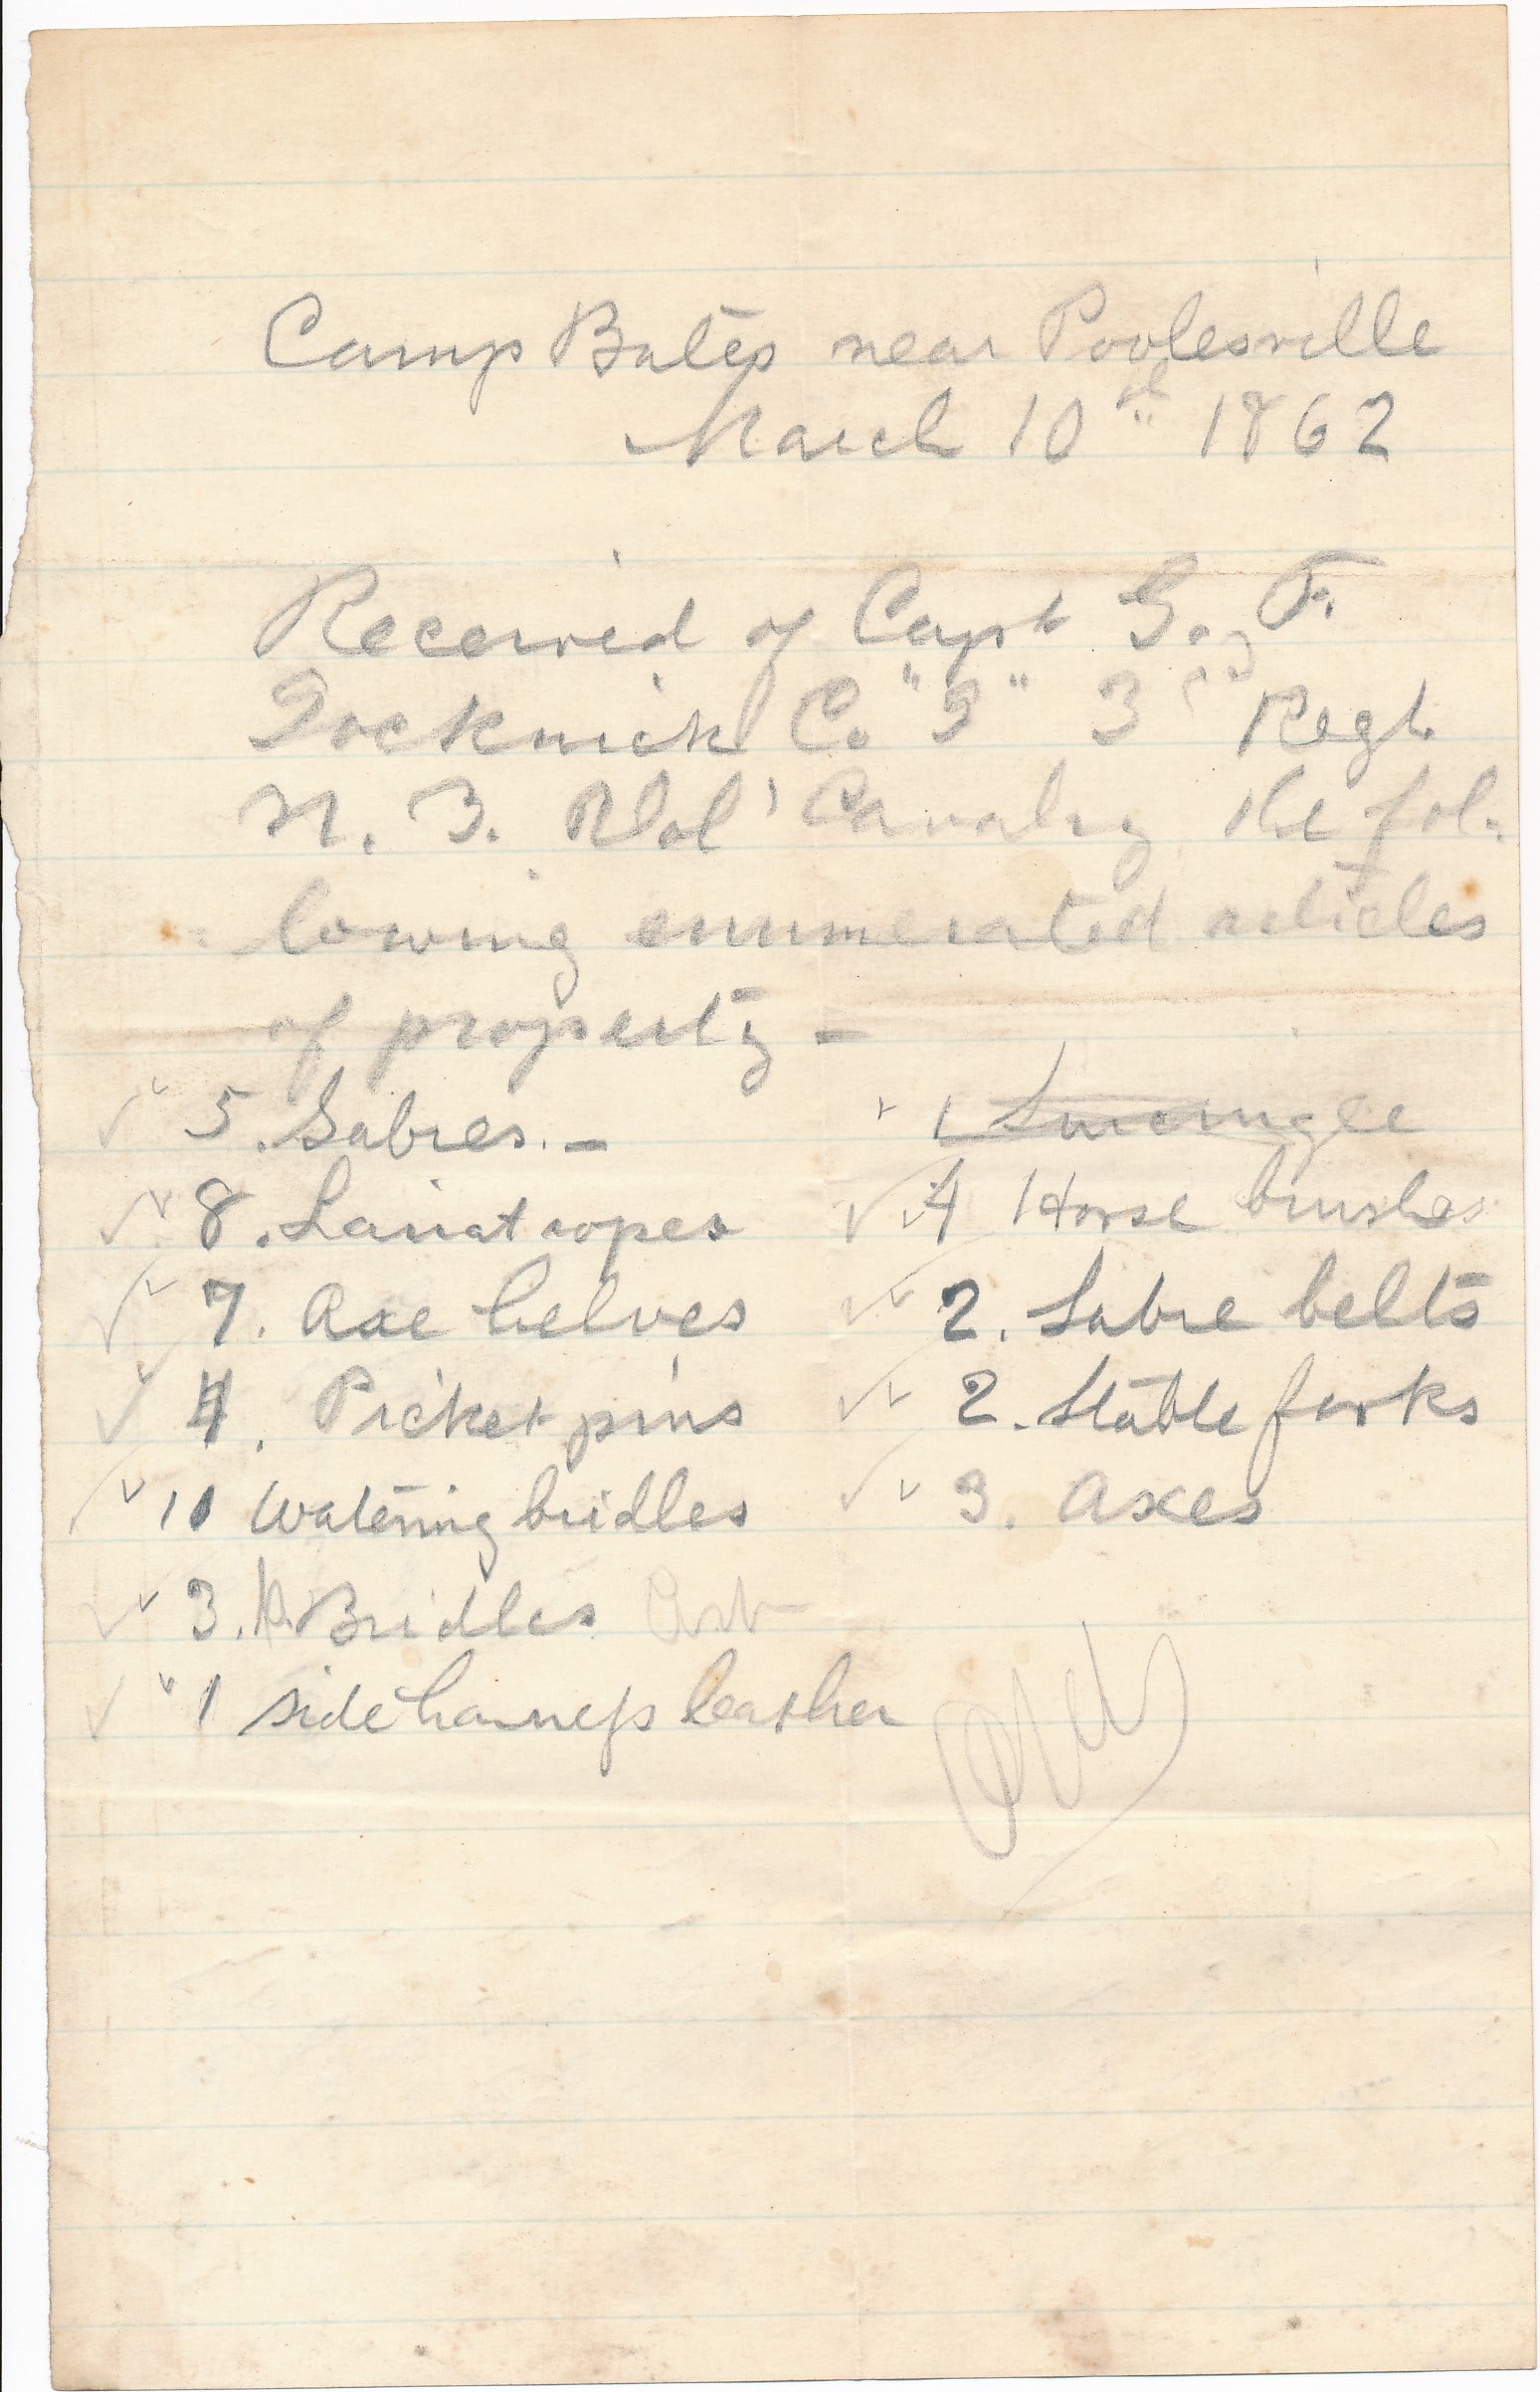 Camp Bates near Poolesville
March 10th 1862
Received of Capt G. F.
Co "I" 3rd Regt.
N. Y. Vol' Cavalry the fol-
lowing enumerated articles
of property –
✓✓ 5. Sabres. –
✓✓ 8. Lariat ropes
✓✓ 7. Axe helves
✓✓ 4. Picket pins
✓✓ 10 Watering bridles
✓✓ 3. Bridles
✓✓ 1 side harness leather
✓ 1 Surcingle
✓ 4 Horse brushes
✓✓ 2. Sabre belts
✓✓ 2. Stable forks
✓✓ 3. Axes